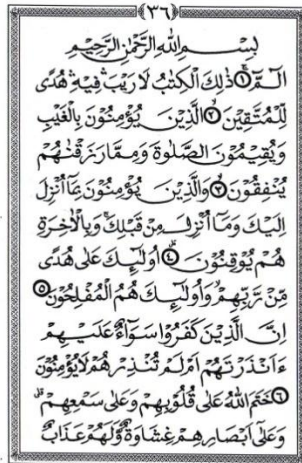 ٣٦
بِسْمِ اللهِ الرَّحْمٰنِ الرَّحِيْمِ
الٓمّٓ ١ ذٰلِكَ الْكِتٰبُ لَا رَيْبَ فِيْهِ هُدًى
لِّلْمُتَّقِيْنَ ٢ الَّذِيْنَ يُؤْمِنُوْنَ بِالْغَيْبِ
وَيُقِيْمُوْنَ الصَّلٰوةَ وَمِمَّا رَزَقْنٰهُمْ
يُنْفِقُوْنَ ٣ وَالَّذِيْنَ يُؤْمِنُوْنَ بِمَا أُنْزِلَ
اِلَيْكَ وَمَا أُنْزِلَ مِنْ قَبْلِكَ وَبِالْاٰخِرَةِ
هُمْ يُوْقِنُوْنَ ٤ أُولٰٓئِكَ عَلٰى هُدًى
مِّنْ رَّبِّهِمْ وَأُولٰٓئِكَ هُمُ الْمُفْلِحُوْنَ ٥
اِنَّ الَّذِيْنَ كَفَرُوْا سَوَآءٌ عَلَيْهِمْ
ءَاَنْذَرْتَهُمْ اَمْ لَمْ تُنْذِرْهُمْ لَا يُؤْمِنُوْنَ
٦ خَتَمَ اللهُ عَلٰى قُلُوْبِهِمْ وَعَلٰى سَمْعِهِمْ
وَعَلٰى اَبْصَارِهِمْ غِشَاوَةٌ وَّلَهُمْ عَذَابٌ